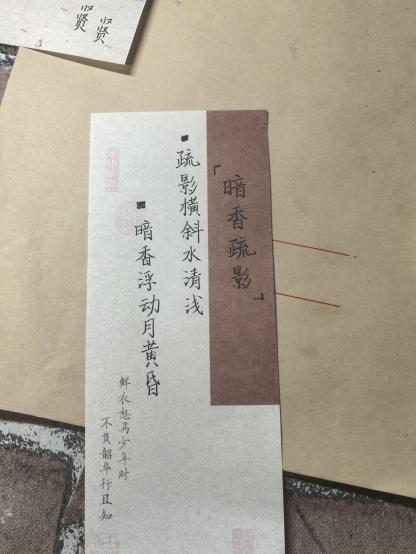 「暗香疏影」
疏影横斜水清浅
暗香浮动月黄昏
鲜衣怒马少年时
不负韶华行且知